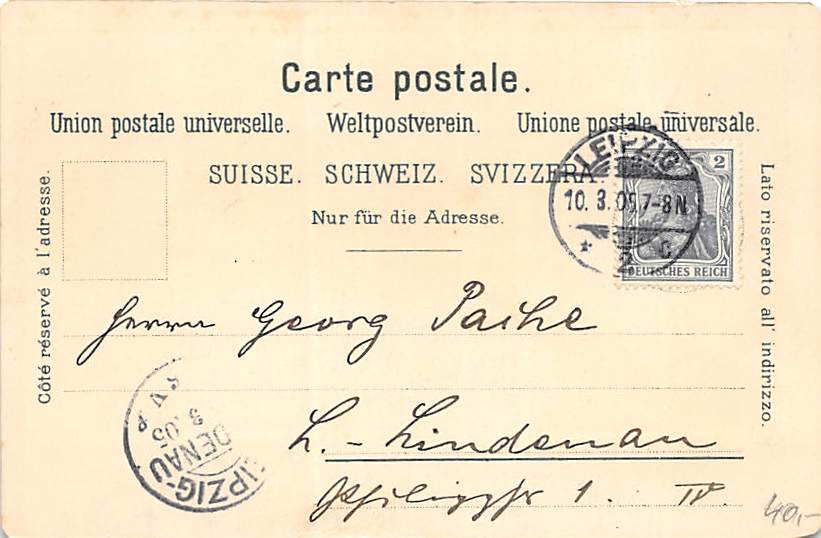 Carte postale.
Union postale universelle. Weltpostverein. Unione postale universale.
SUISSE. SCHWEIZ. SVIZZERA.
Nur für die Adresse.
Côté réservé à l'adresse.
Lato riservato all' indirizzo.
LEIPZIG
10. 3. 05. 7-8 N.
* 2 c
2
DEUTSCHES REICH
Herrn Georg Pache
L.-Lindenau
1. IV.
LEIPZIG-
DENAU
3.05
V.
40,-